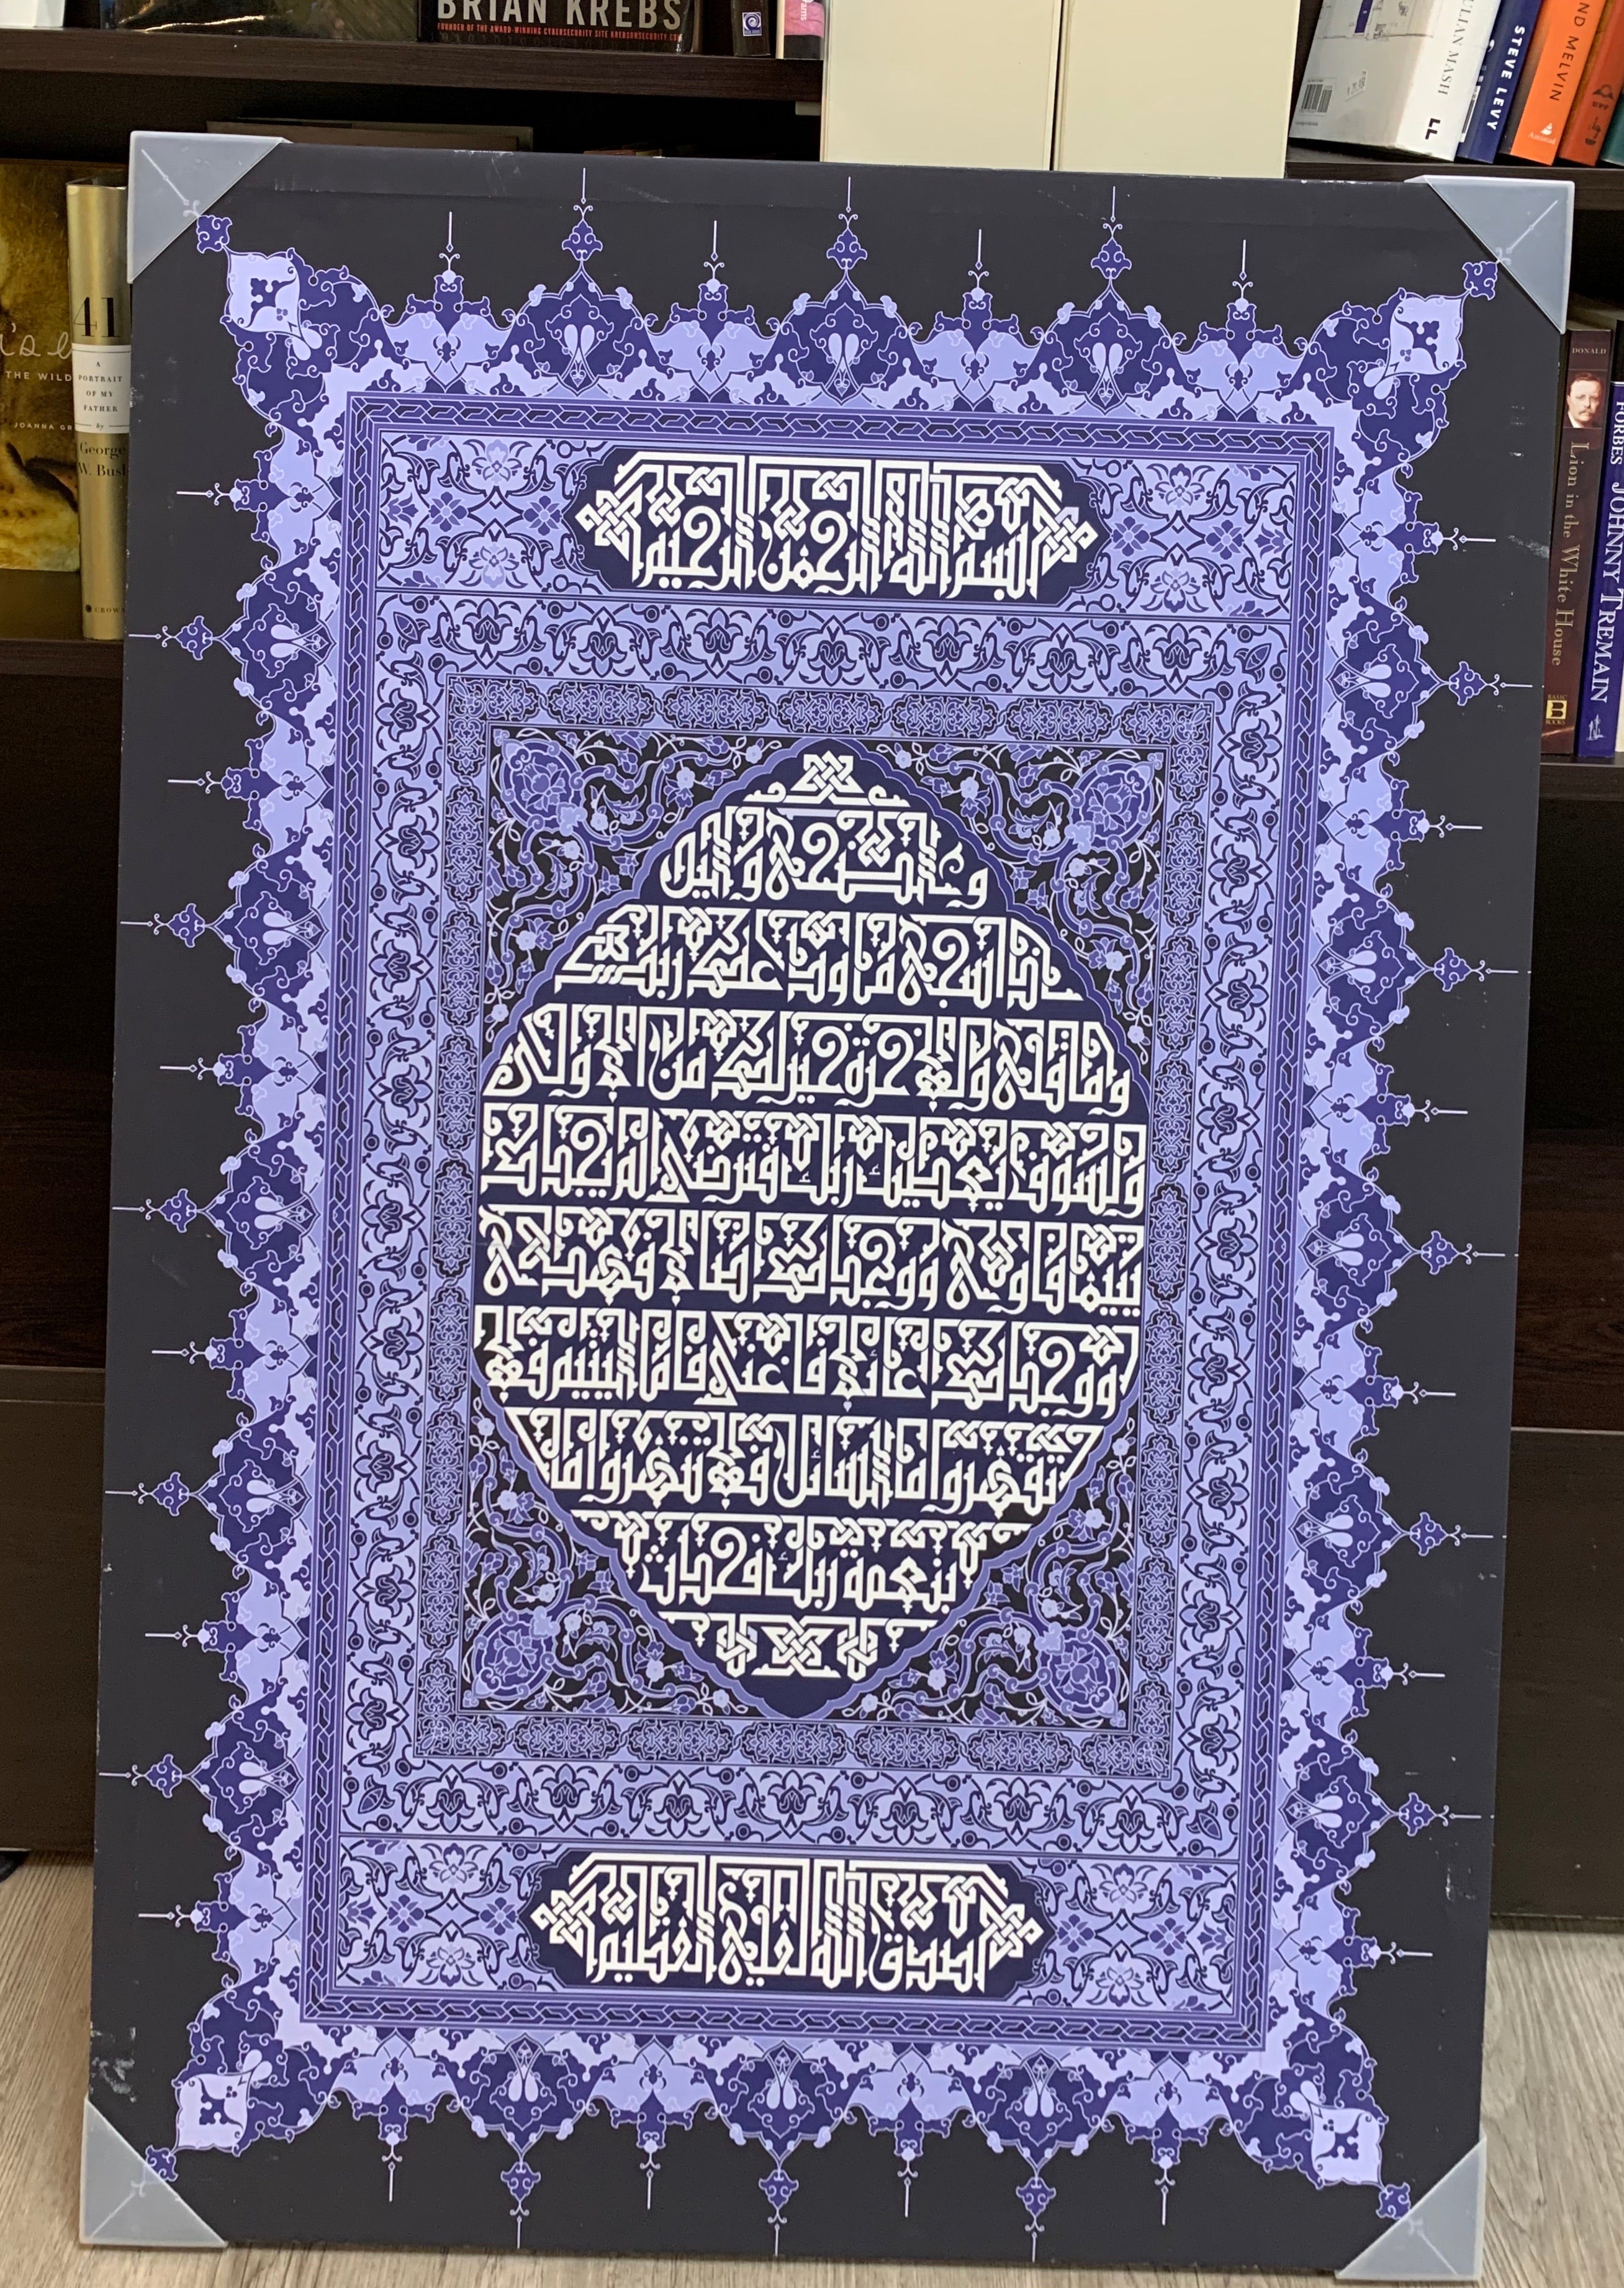 BRIAN KREBS
FOUNDER OF THE AWARD-WINNING CYBERSECURITY SITE KREBSONSECURITY.CO
MASH
STEVE LEVY
ND MELVIN
41
A
PORTRAIT
OF MY
FATHER
by
George
W. Bush
CROWN
THE WILD
JOANNA GR
بسم الله الرحمن الرحيم
والضحى واليل
إذا سجى ما ودعك ربك
وما قلى وللآخرة خير لك من الأولى
ولسوف يعطيك ربك فترضى ألم يجدك
يتيما فآوى ووجدك ضالا فهدى
ووجدك عائلا فأغنى فأما اليتيم فلا
تقهر وأما السائل فلا تنهر وأما
بنعمة ربك فحدث
صدق الله العلي العظيم
DONALD
Lion in the White House
BASIC
BOOKS
FORBES JOHNNY TREMAIN